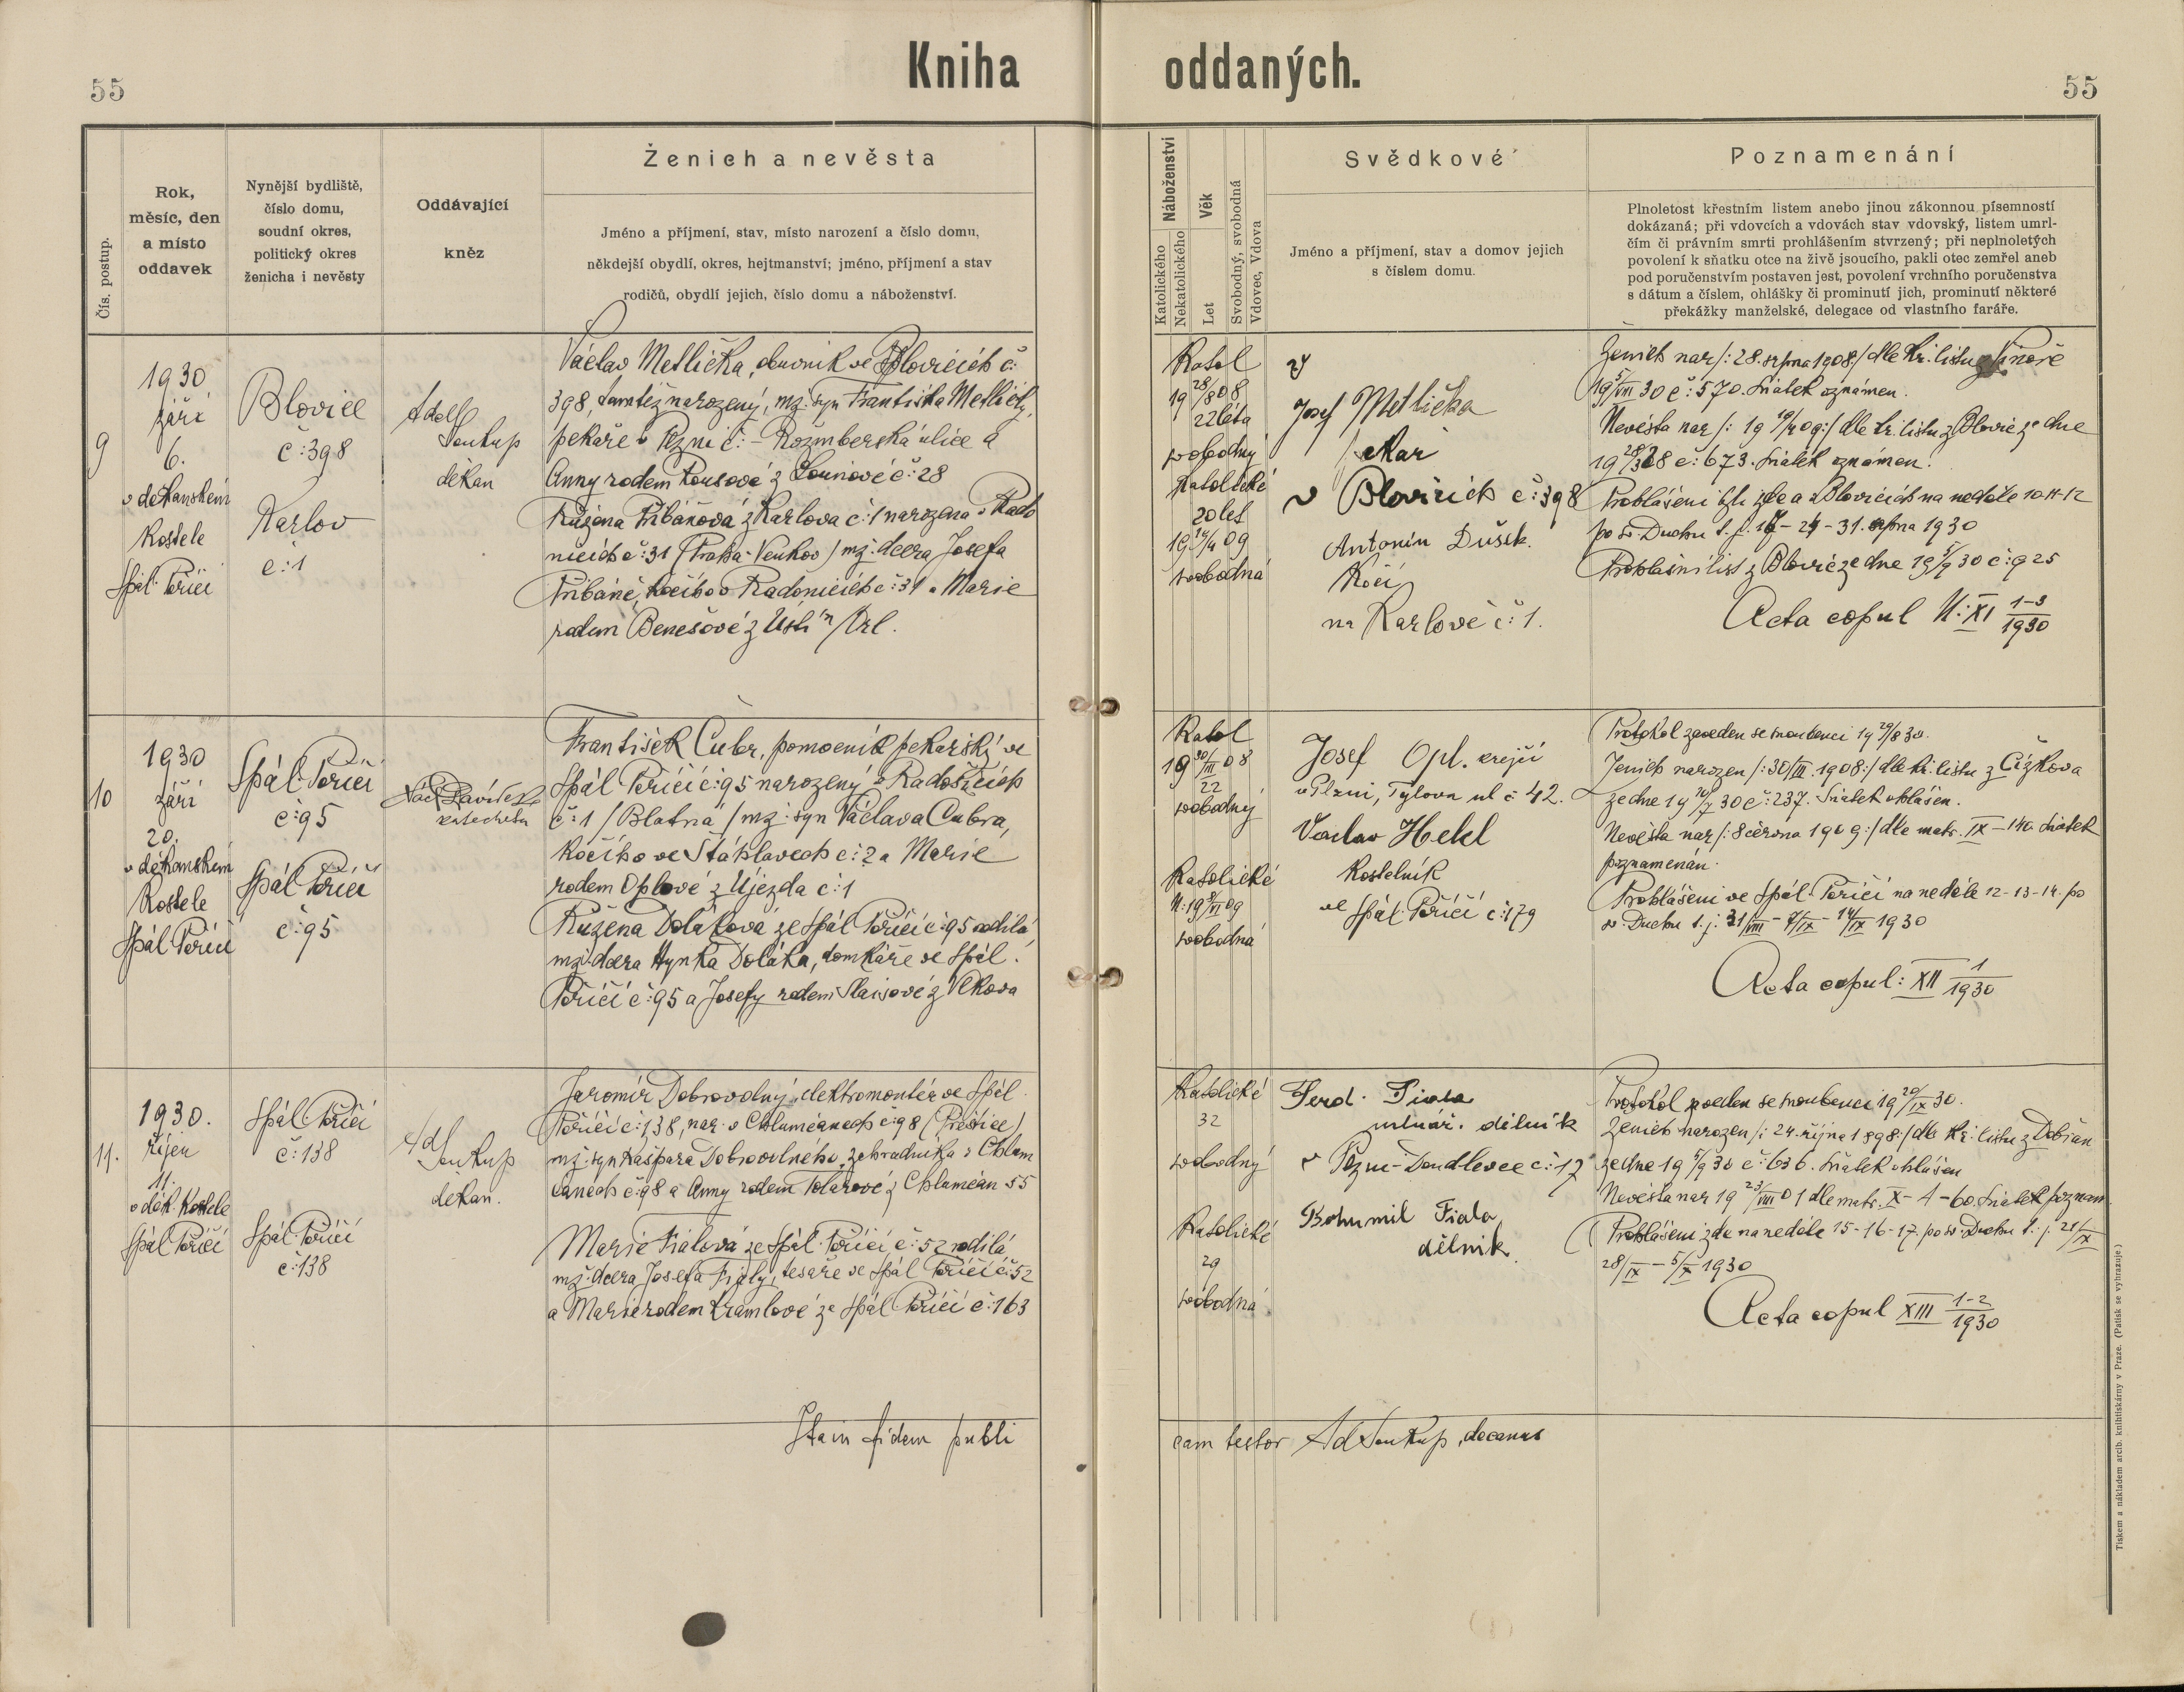 55
Kniha oddaných.
55
Čís. postup.
Rok,
měsíc, den
a místo
oddavek
Nynější bydliště,
číslo domu,
soudní okres,
politický okres
ženicha i nevěsty
Oddávající
kněz
Ženich a nevěsta
Jméno a příjmení, stav, místo narození a číslo domu,
někdejší obydlí, okres, hejtmanství; jméno, příjmení a stav
rodičů, obydlí jejich, číslo domu a náboženství.
Náboženství
Katolického
Nekatolického
Věk
Let
Svobodný, svobodná
Vdovec, Vdova
Svědkové
Jméno a příjmení, stav a domov jejich
s číslem domu.
Poznamenání
Plnoletost křestním listem anebo jinou zákonnou písemností
dokázaná; při vdovcích a vdovách stav vdovský, listem umrl-
čím či právním smrti prohlášením stvrzený; při neplnoletých
povolení k sňatku otce na živě jsoucího, pakli otec zemřel aneb
pod poručenstvím postaven jest, povolení vrchního poručenstva
s dátum a číslem, ohlášky či prominutí jich, prominutí některé
překážky manželské, delegace od vlastního faráře.
9
1930
září
6.
v děkanském
Kostele
Spál. Poříčí
Blovice
č: 398
Karlov
č: 1
Adolf
Soukup
děkan
Václav Metlička, obuvník ve Blovicích č:
398, tamtéž narozený, mž: syn Františka Metličky,
pekaře v Plzni č: - Rožmberská ulice a
Anny rodem Kousové z Louňové č: 28
Růžena Přibáňová z Karlova č: 1 narozena v Rado
nicích č: 31 (Praha-Venkov) mž: dcera Josefa
Přibáně, kočího v Radonicích č: 31 a Marie
rodem Benešové z Ústí n/Orl.
Katol
19 28/8 08
22 léta
svobodný
Katolické
20 let
19 19/4 09
svobodná
Josef Metlička
pekař
v Blovicích č: 398
Antonín Dušek.
Kočí
na Karlově č: 1.
Ženich nar /: 28. srpna 1908:/ dle kř. listu z
19 5/VIII 30 č: 570. Sňatek oznámen.
Nevěsta nar /: 19 19/4 09:/ dle kř. listu z Blovic ze dne
č: 673. Sňatek oznámen.
Prohlášeni byli zde a v Blovicích na neděle 10-11-12
po sv. Duchu t. j. 17 - 24 - 31. srpna 1930
Prohlášní list z Blovic ze dne 19 5/9 30 č: 925
Acta copul N: XI 1-3/1930
10
1930
září
20.
v děkanském
Kostele
Spál. Poříčí
Spál. Poříčí
č: 95
Spál. Poříčí
č: 95
katecheta
František Cubr, pomocník pekařský ve
Spál. Poříčí č: 95 narozený v Radošicích
č: 1 /Blatná/ mž: syn Václava Cubra,
kočího ve Štáhlavech č: 2 a Marie
rodem Oplové z Újezda č: 1
Růžena Doláková ze Spál. Poříčí č: 95 rodilá,
mž: dcera Hynka Doláka, domkáře ve Spál.
Poříčí č: 95 a Josefy rodem Slaisové z Vlkova
Katol
19 30/III 08
22
svobodný
Katolické
N: 19 8/VI 09
svobodná
Josef Opl. krejčí
v Plzni, Tylova ul č 42.
Václav Hekl
Kostelník
ve Spál. Poříčí č: 179
Protokol zaveden se snoubenci 19 29/8 30.
Ženich narozen /: 30/III. 1908:/ dle kř. listu z Čížkova
ze dne 19 10/7 30 č: 237. Sňatek ohlášen.
Nevěsta nar /: 8 června 1909:/ dle matr. IX - 140 Sňatek
poznamenán.
Prohlášeni ve Spál. Poříčí na neděle 12-13-14 po
sv. Duchu t. j. 31/VIII - 7/IX - 14/IX 1930
Acta copul: XII 1/1930
11.
1930.
říjen
11.
v děk. Kostele
Spál. Poříčí
Spál. Poříčí
č: 138
Spál. Poříčí
č: 138
Ad Soukup
děkan.
Jaromír Dobrovolný, elektromontér ve Spál.
Poříčí č: 138, nar. v Chlumčanech č: 98 (Přeštice)
mž: syn Kašpara Dobrovolného, zahradníka v Chlum
čanech č: 98 a Anny rodem Kolářové z Chlumčan 55
Marie Fialová ze Spál. Poříčí č: 52 rodilá,
mž: dcera Josefa Fialy, tesaře ve Spál. Poříčí č: 52
a Marie rodem Kramlové ze Spál. Poříčí č: 163
Katolické
32
svobodný
Katolické
29
svobodná
Ferd. Fiala
mlynář. dělník
v Plzni-Doudlevce č: 17
Bohumil Fiala
dělník.
Protokol zaveden se snoubenci 19 20/IX 30.
Ženich narozen /: 24. října 1898:/ dle kř. listu z Dobřan
ze dne 19 5/9 30 č: 636. Sňatek ohlášen
Nevěsta nar 19 23/VIII 01 dle matr. X - 4 - 60. Sňatek poznam.
Prohlášeni zde na neděle 15-16-17. po sv. Duchu t. j. 21/IX
28/IX - 5/X 1930
Acta copul XIII 1-2/1930
Itain fidem publi
cam testor Ad Soukup, decanus
Tiskem a nákladem arcib. knihtiskárny v Praze. (Patisk se vyhrazuje.)